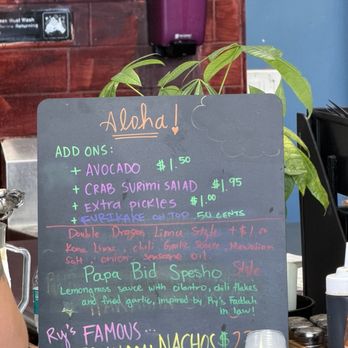 Must Wash
Returning
Aloha!
ADD ONS:
+ AVOCADO $1.50
+ CRAB SURIMI SALAD $1.95
+ EXTRA PICKLES $1.00
+ FURIKAKE ON TOP .50 CENTS
Double Dragon Limu Style + $1.
Kona Limu, chili Garlic Sauce, Hawaiian
Salt, onion, sesame oil. Style
Papa Bid Spesho
Lemongrass sauce with cilantro, chili flakes
and fried garlic, inspired by Ry's Faddah
in law!
Ry's FAMOUS...
NACHOS $